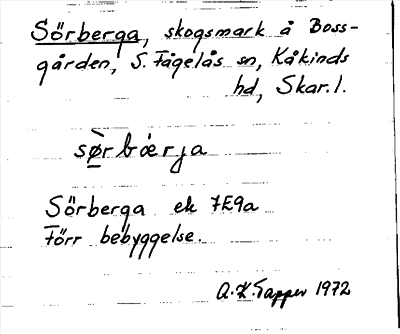 Sörberga, skogsmark å Boss-
gården, S. Fågelås sn, Kåkinds
hd, Skar. l.
sø̀rbærja
Sörberga ek 7E9a
Förr bebyggelse.
A. K. Tapper 1972